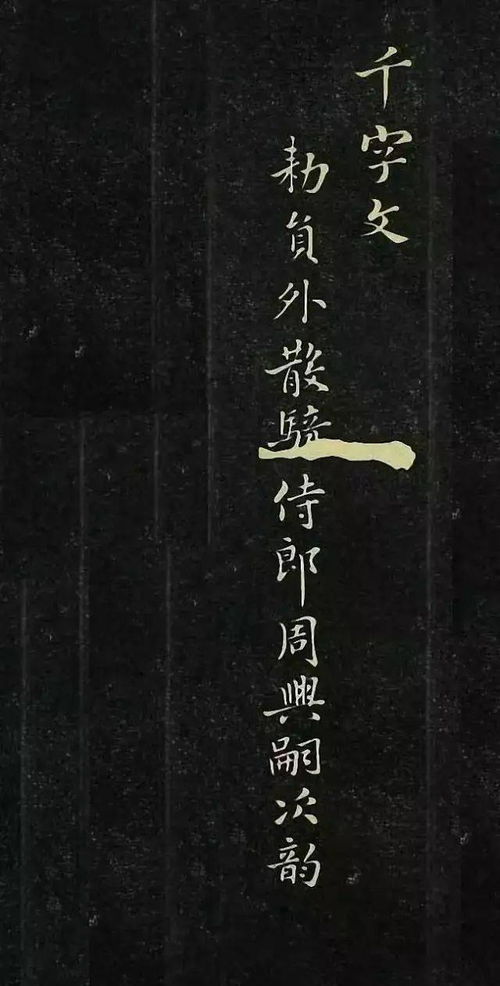 千字文
勅員外散騎侍郎周興嗣次韵